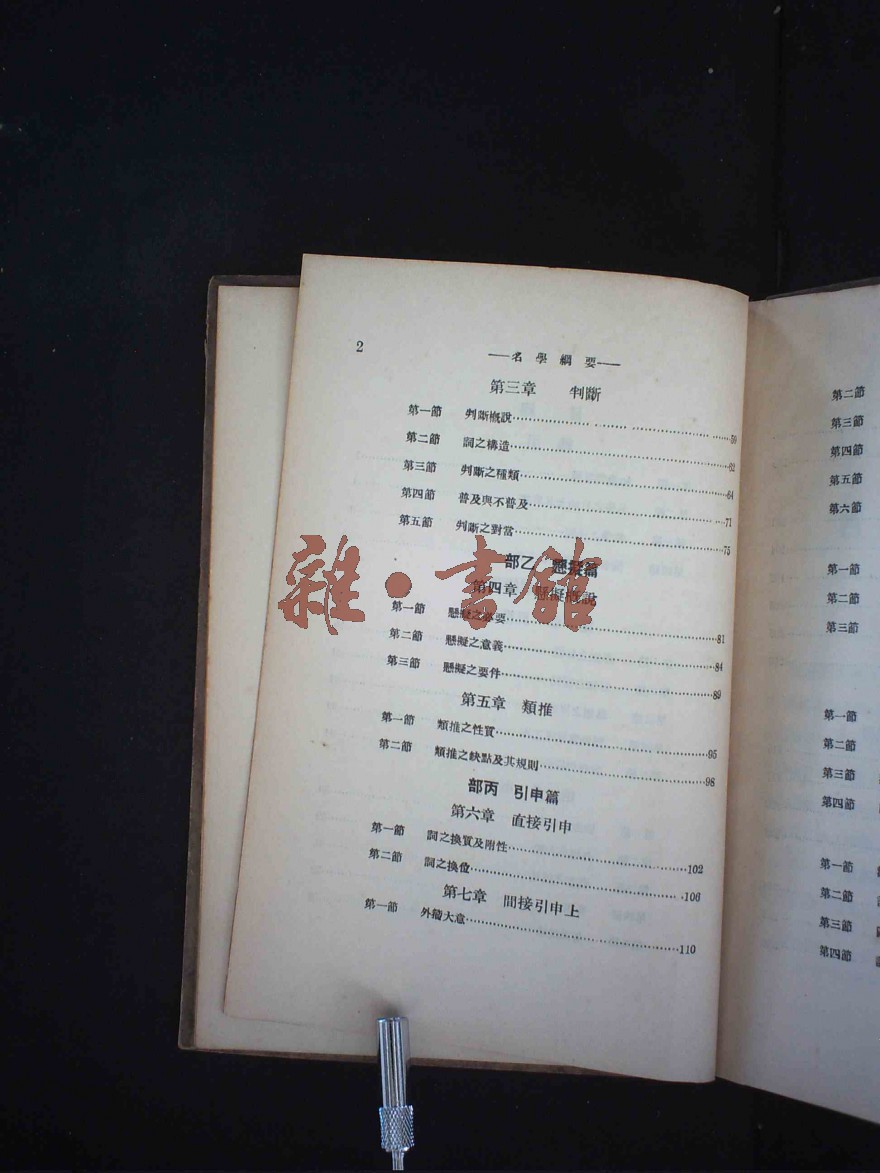 2
——名學綱要——
第三章 判斷
第一節 判斷概說 59
第二節 詞之構造 62
第三節 判斷之種類 64
第四節 普及與不普及 71
第五節 判斷之對當 75
部乙 懸擬篇
第四章 懸擬概說
第一節 懸擬之必要 81
第二節 懸擬之意義 84
第三節 懸擬之要件 89
第五章 類推
第一節 類推之性質 95
第二節 類推之缺點及其規則 98
部丙 引申篇
第六章 直接引申
第一節 詞之換質及附性 102
第二節 詞之換位 106
第七章 間接引申上
第一節 外籀大意 110
雜·書館
第二節
第三節
第四節
第五節
第六節
第一節
第二節
第三節
第一節
第二節
第三節
第四節
第一節
第二節
第三節
第四節